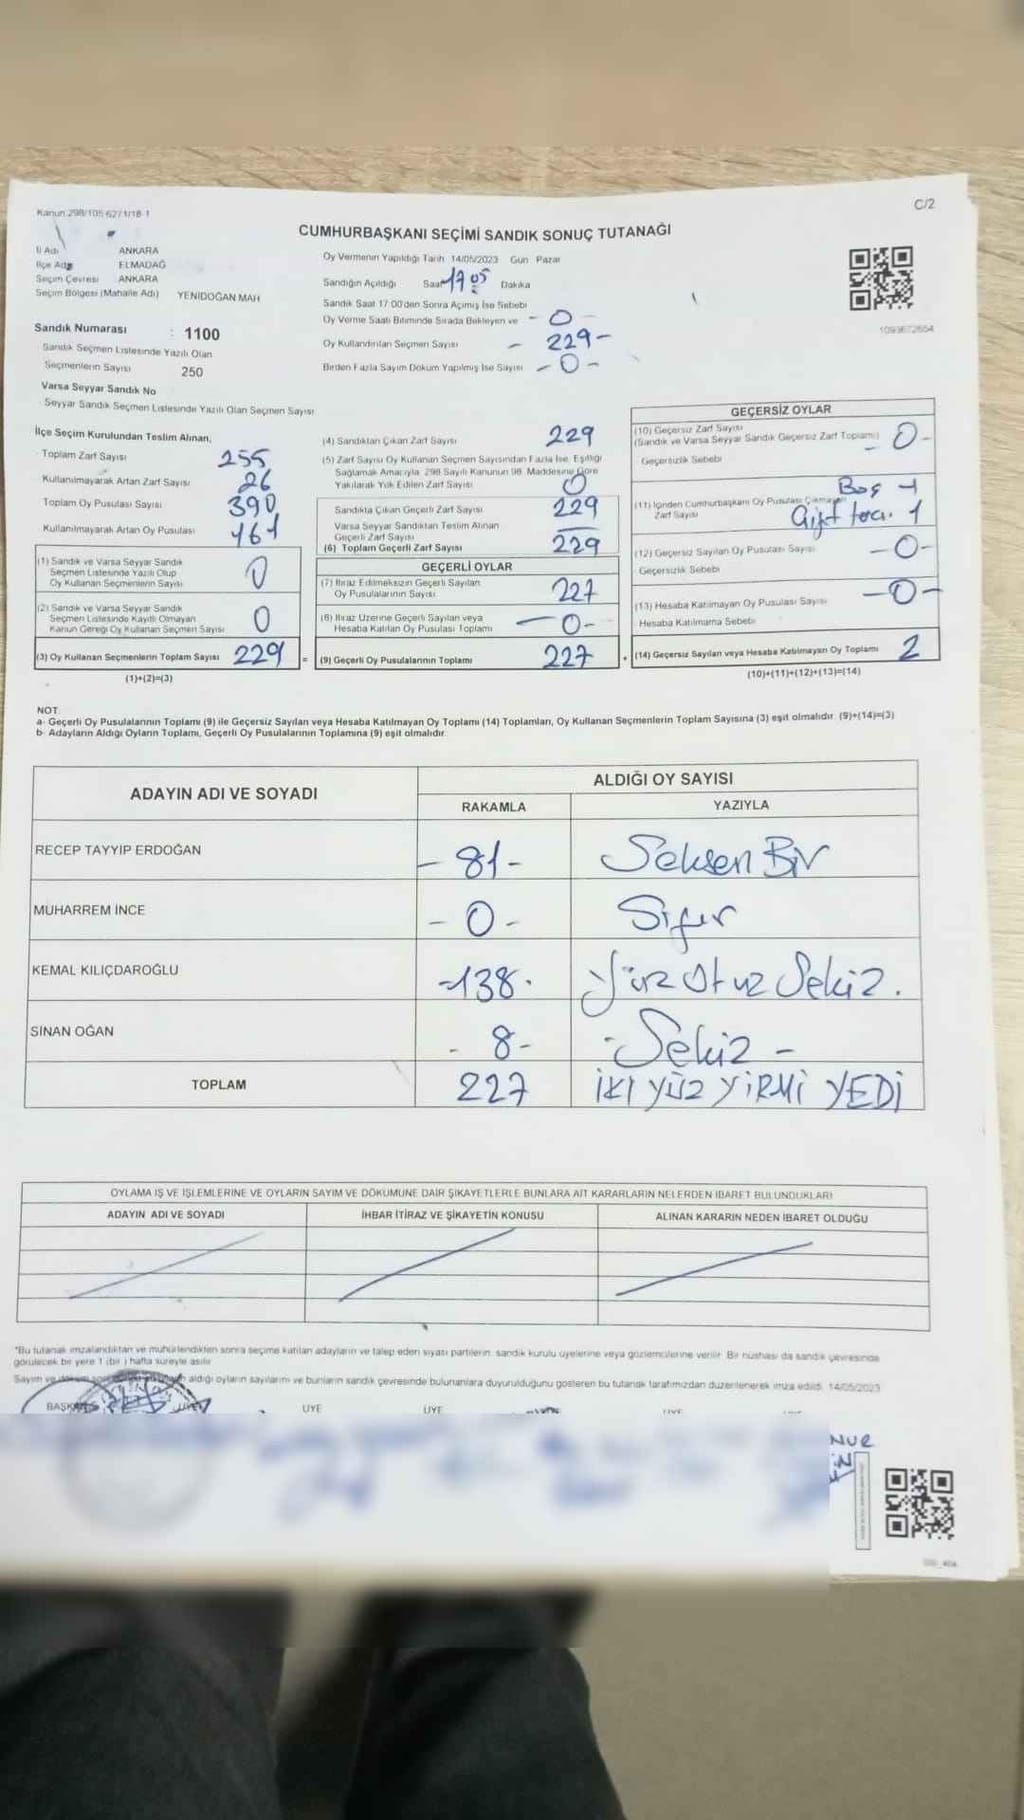 Kanun 298/105 6271/18-1
C/2
CUMHURBAŞKANI SEÇİMİ SANDIK SONUÇ TUTANAĞI
İl Adı ANKARA
İlçe Adı ELMADAĞ
Seçim Çevresi ANKARA
Seçim Bölgesi (Mahalle Adı) YENİDOĞAN MAH
Sandık Numarası : 1100
Sandık Seçmen Listesinde Yazılı Olan
Seçmenlerin Sayısı 250
Varsa Seyyar Sandık No
Seyyar Sandık Seçmen Listesinde Yazılı Olan Seçmen Sayısı
Oy Vermenin Yapıldığı Tarih 14/05/2023 Gün Pazar
Sandığın Açıldığı Saat 17 05 Dakika
Sandık Saat 17 00'den Sonra Açılmış İse Sebebi
Oy Verme Saati Bitiminde Sırada Bekleyen ve - 0 -
Oy Kullandırılan Seçmen Sayısı - 229 -
Birden Fazla Sayım Döküm Yapılmış İse Sayısı - 0 -
1093672654
İlçe Seçim Kurulundan Teslim Alınan,
Toplam Zarf Sayısı 255
Kullanılmayarak Artan Zarf Sayısı 26
Toplam Oy Pusulası Sayısı 390
Kullanılmayarak Artan Oy Pusulası 161
(1) Sandık ve Varsa Seyyar Sandık
Seçmen Listesinde Yazılı Olup
Oy Kullanan Seçmenlerin Sayısı 0
(2) Sandık ve Varsa Seyyar Sandık
Seçmen Listesinde Kayıtlı Olmayan
Kanun Gereği Oy Kullanan Seçmen Sayısı 0
(3) Oy Kullanan Seçmenlerin Toplam Sayısı 229 =
(1)+(2)=(3)
(4) Sandıktan Çıkan Zarf Sayısı 229
(5) Zarf Sayısı Oy Kullanan Seçmen Sayısından Fazla İse, Eşitliği
Sağlamak Amacıyla 298 Sayılı Kanunun 98. Maddesine Göre
Yakılarak Yok Edilen Zarf Sayısı 0
Sandıkta Çıkan Geçerli Zarf Sayısı 229
Varsa Seyyar Sandıktan Teslim Alınan
Geçerli Zarf Sayısı —
(6) Toplam Geçerli Zarf Sayısı 229
GEÇERLİ OYLAR
(7) İtiraz Edilmeksizin Geçerli Sayılan
Oy Pusulalarının Sayısı 227
(8) İtiraz Üzerine Geçerli Sayılan veya
Hesaba Katılan Oy Pusulası Toplamı - 0 -
(9) Geçerli Oy Pusulalarının Toplamı 227 +
GEÇERSİZ OYLAR
(10) Geçersiz Zarf Sayısı
(Sandık ve Varsa Seyyar Sandık Geçersiz Zarf Toplamı) - 0 -
Geçersizlik Sebebi
Boş 1
(11) İçinden Cumhurbaşkanı Oy Pusulası Çıkmayan
Zarf Sayısı 1
(12) Geçersiz Sayılan Oy Pusulası Sayısı - 0 -
Geçersizlik Sebebi
(13) Hesaba Katılmayan Oy Pusulası Sayısı - 0 -
Hesaba Katılmama Sebebi
(14) Geçersiz Sayılan veya Hesaba Katılmayan Oy Toplamı 2
(10)+(11)+(12)+(13)=(14)
NOT
a- Geçerli Oy Pusulalarının Toplamı (9) ile Geçersiz Sayılan veya Hesaba Katılmayan Oy Toplamı (14) Toplamları, Oy Kullanan Seçmenlerin Toplam Sayısına (3) eşit olmalıdır. (9)+(14)=(3)
b- Adayların Aldığı Oyların Toplamı, Geçerli Oy Pusulalarının Toplamına (9) eşit olmalıdır
ADAYIN ADI VE SOYADI
ALDIĞI OY SAYISI
RAKAMLA YAZIYLA
RECEP TAYYİP ERDOĞAN - 81 - Seksen Bir
MUHARREM İNCE - 0 - Sıfır
KEMAL KILIÇDAROĞLU -138. Yüz Otuz Sekiz.
SİNAN OĞAN - 8 - - Sekiz -
TOPLAM 227 İKİ YÜZ YİRMİ YEDİ
OYLAMA İŞ VE İŞLEMLERİNE VE OYLARIN SAYIM VE DÖKÜMÜNE DAİR ŞİKAYETLERLE BUNLARA AİT KARARLARIN NELERDEN İBARET BULUNDUKLARI
ADAYIN ADI VE SOYADI İHBAR İTİRAZ VE ŞİKAYETİN KONUSU ALINAN KARARIN NEDEN İBARET OLDUĞU
*Bu tutanak imzalandıktan ve mühürlendikten sonra seçime katılan adayların ve talep eden siyasi partilerin sandık kurulu üyelerine veya gözlemcilerine verilir. Bir nüshası da sandık çevresinde
görülecek bir yere 1 (bir) hafta süreyle asılır
Sayım ve aldığı oyların sayılarını ve bunların sandık çevresinde bulunanlara duyurulduğunu gösteren bu tutanak tarafımızdan düzenlenerek imza edildi. 14/05/2023
BAŞKAN ÜYE ÜYE
NUR